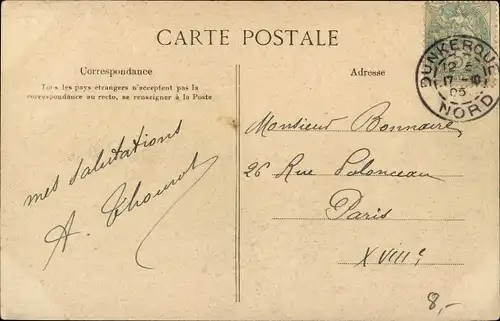 CARTE POSTALE
Correspondance
Tous les pays étrangers n'acceptent pas la
correspondance au recto, se renseigner à la Poste
Adresse
DUNKERQUE
17 -10
05
NORD
mes salutations
A.
Monsieur Bonnaire
26 Rue Polonceau
Paris
XVIIIe
8,-